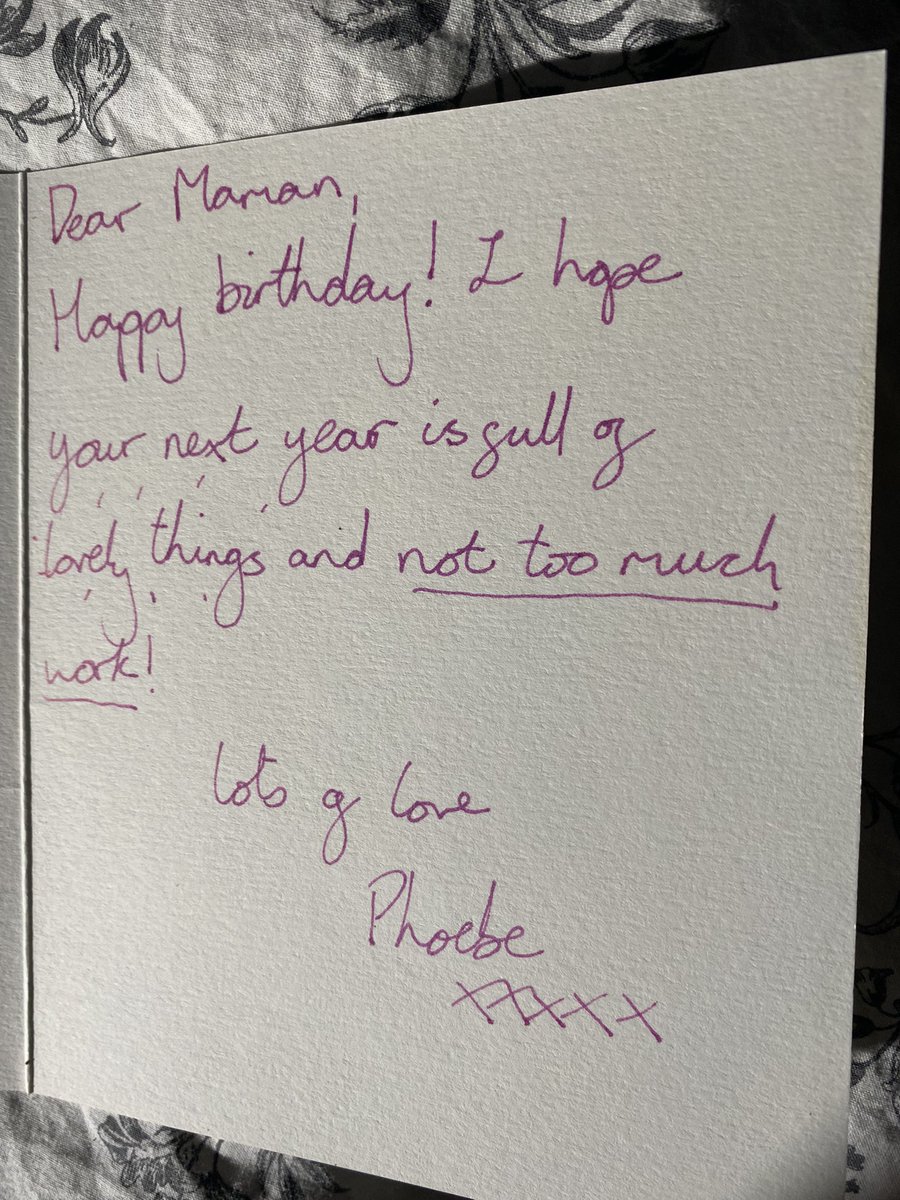 Dear Maman,
Happy birthday! I hope
your next year is full of
lovely things and not too much
work!
lots of love
Phoebe
xxxxx